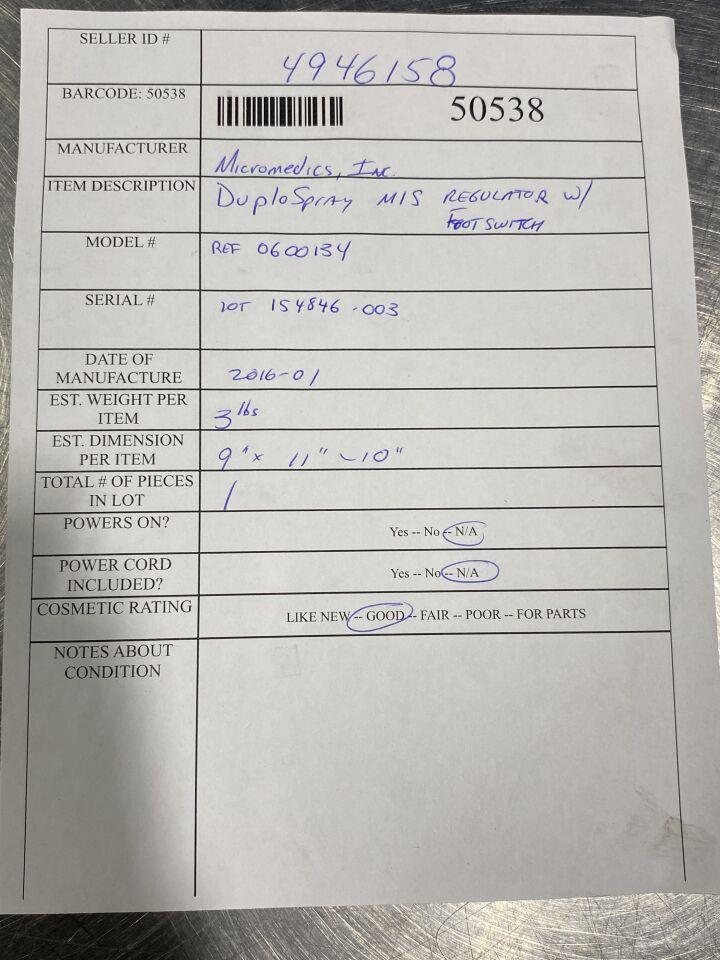 SELLER ID #
4946158
BARCODE: 50538
50538
MANUFACTURER
Micromedics, Inc.
ITEM DESCRIPTION
DuploSpray MIS REGULATOR W/
FOOT SWITCH
MODEL #
REF 0600134
SERIAL #
LOT 154846-003
DATE OF
MANUFACTURE
2016-01
EST. WEIGHT PER
ITEM
3 lbs
EST. DIMENSION
PER ITEM
9" x 11" - 10"
TOTAL # OF PIECES
IN LOT
1
POWERS ON?
Yes -- No -- N/A
POWER CORD
INCLUDED?
Yes -- No -- N/A
COSMETIC RATING
LIKE NEW -- GOOD -- FAIR -- POOR -- FOR PARTS
NOTES ABOUT
CONDITION